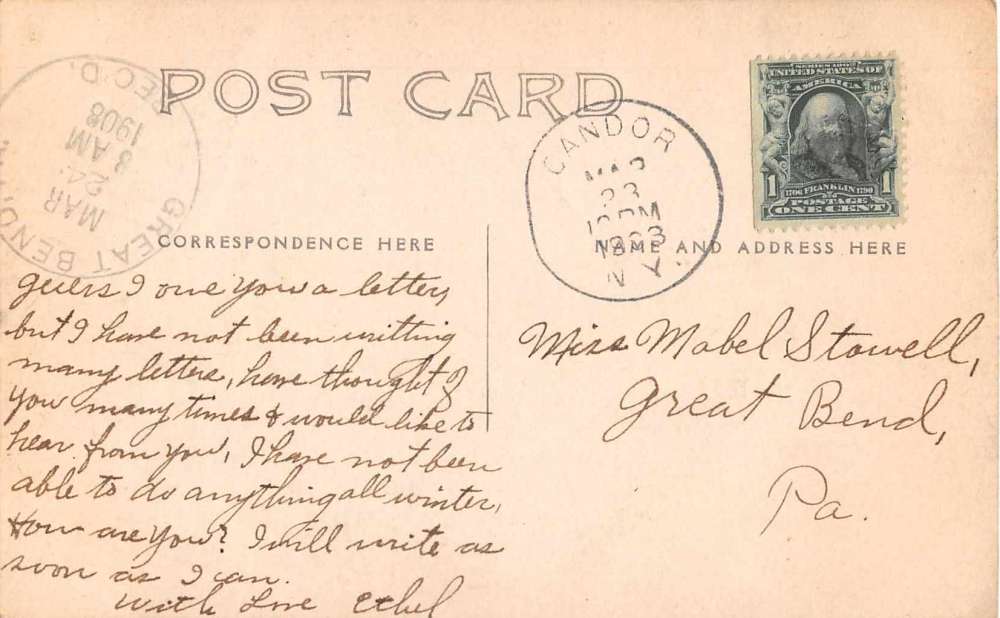 POST CARD
GREAT BEND,
MAR
24
8 AM
1908
REC'D.
CANDOR
MAR
23
1908
N.Y.
SERIES 1902
UNITED STATES OF
AMERICA
1 1706 FRANKLIN 1790 1
POSTAGE
ONE CENT
CORRESPONDENCE HERE
NAME AND ADDRESS HERE
guess I owe you a letter,
but I have not been writting
many letters, have thought of
you many times & would like to
hear from you, I have not been
able to do anything all winter,
How are you? I will write as
soon as I can.
With Love Ethel
Miss Mabel Stowell,
Great Bend,
Pa.